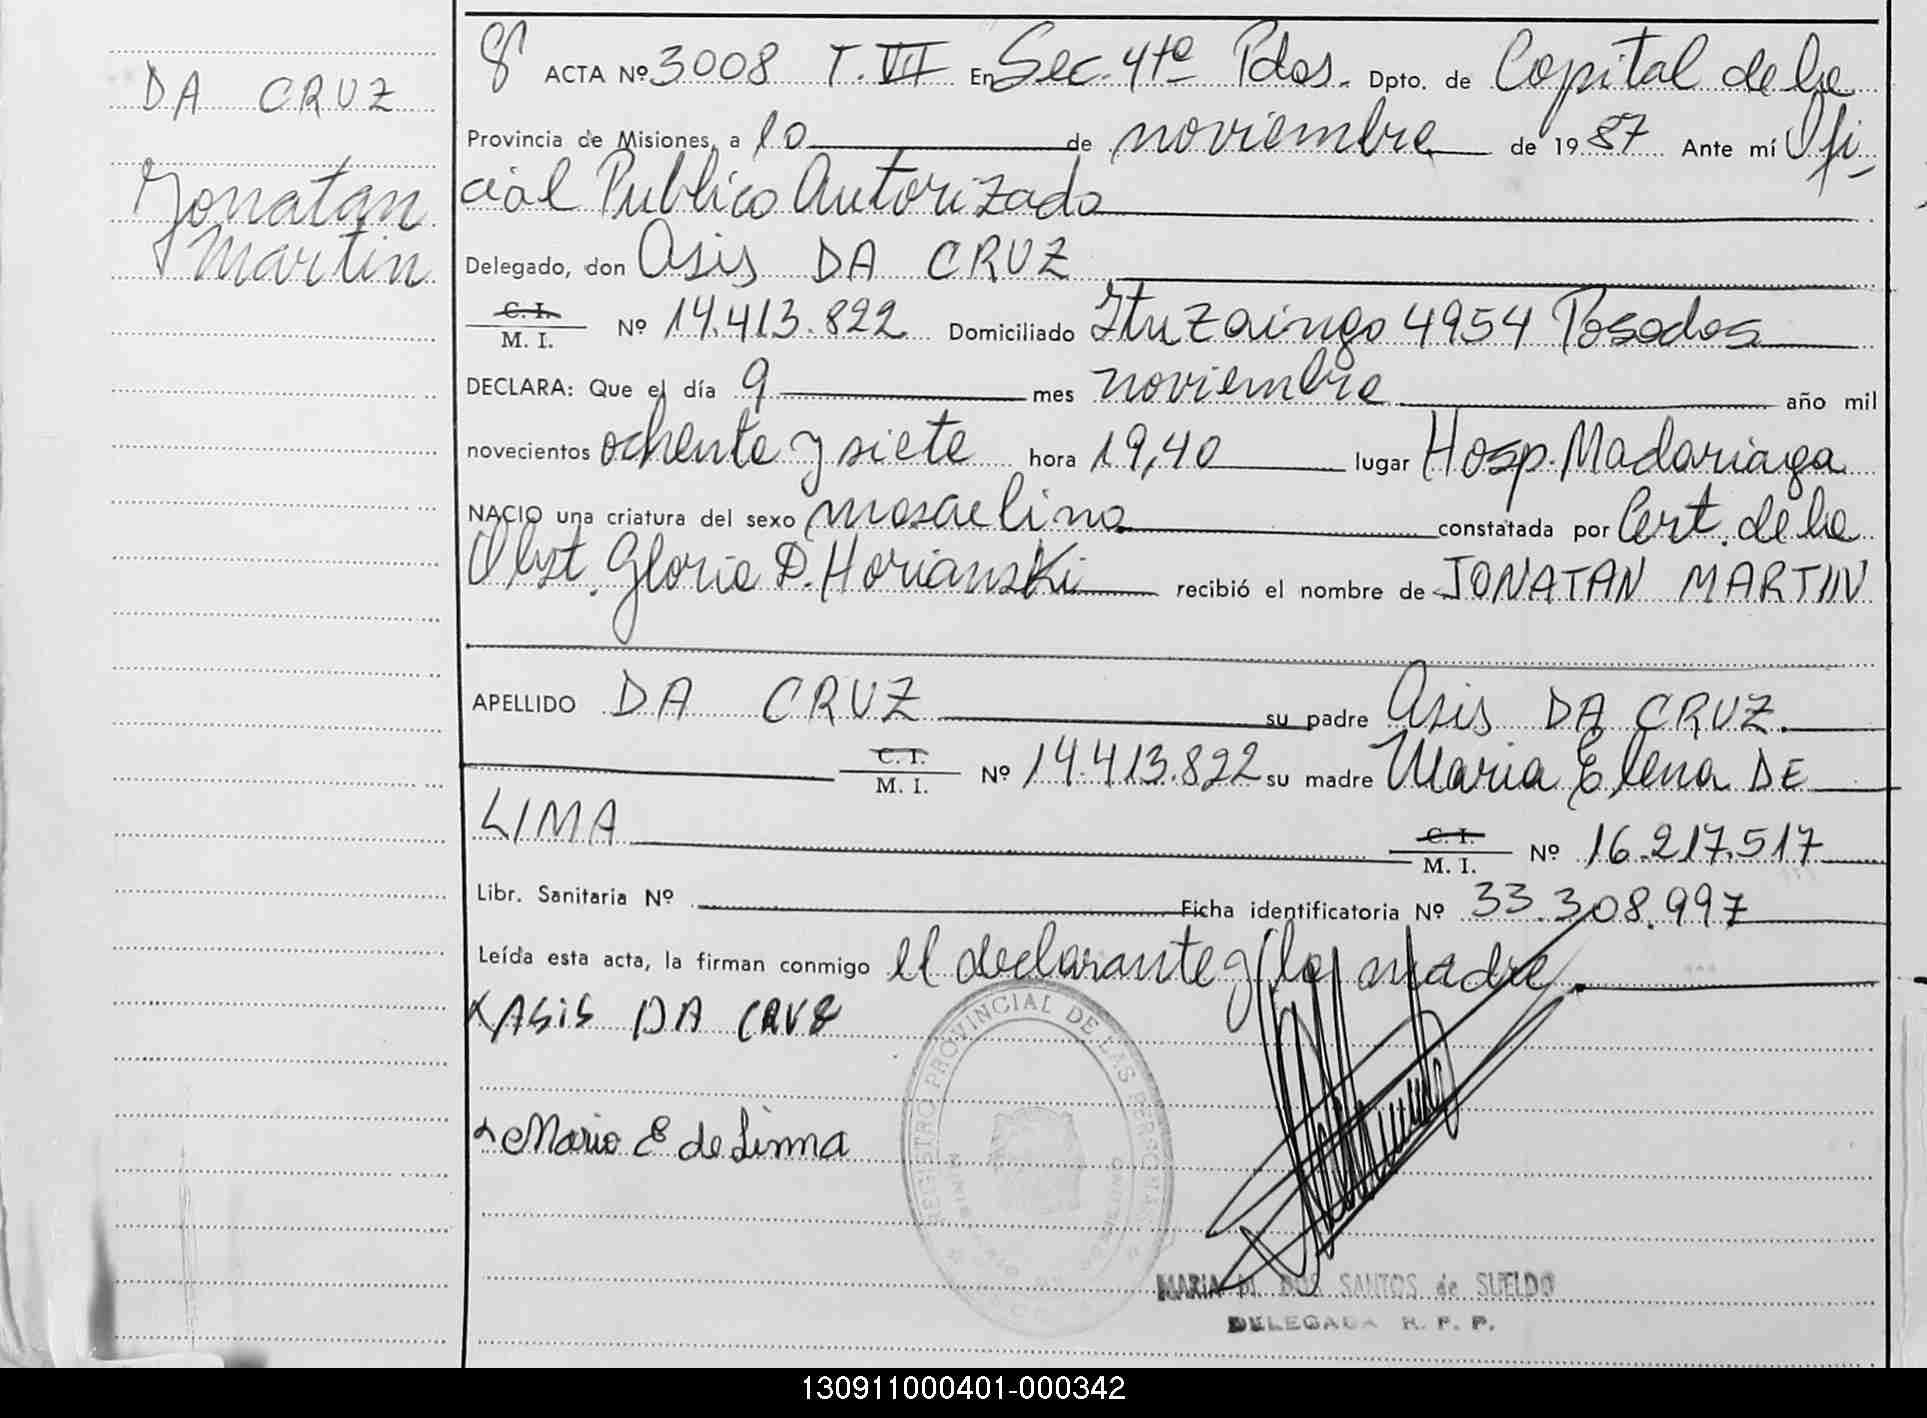 DA CRUZ
Jonatan
Martin
8 ACTA Nº 3008 T. VII En Sec. 4ta Pdas. Dpto. de Capital de la
Provincia de Misiones, a 10 de noviembre de 1987 Ante mí Ofi-
cial Publico Autorizado
Delegado, don Asis DA CRUZ
C. I.
M. I. Nº 14.413.822 Domiciliado Ituzaingo 4954 Posadas
DECLARA: Que el día 9 mes noviembre año mil
novecientos ochenta y siete hora 19,40 lugar Hosp. Madariaga
NACIO una criatura del sexo masculino constatada por Cert. de la
Obst. Gloria D. Horianski recibió el nombre de JONATAN MARTIN
APELLIDO DA CRUZ su padre Asis DA CRUZ.
C. I.
M. I. Nº 14.413.822 su madre Maria Elena DE
LIMA
C. I.
M. I. Nº 16.217.517
Libr. Sanitaria Nº Ficha identificatoria Nº 33.308.997
Leída esta acta, la firman conmigo el declarante y la madre
ASiS DA CRUZ
Maria E de Lima
REGISTRO PROVINCIAL DE LAS PERSONAS
MARIA DOS SANTOS de SUELDO
DELEGADA R. P. P.
130911000401-000342